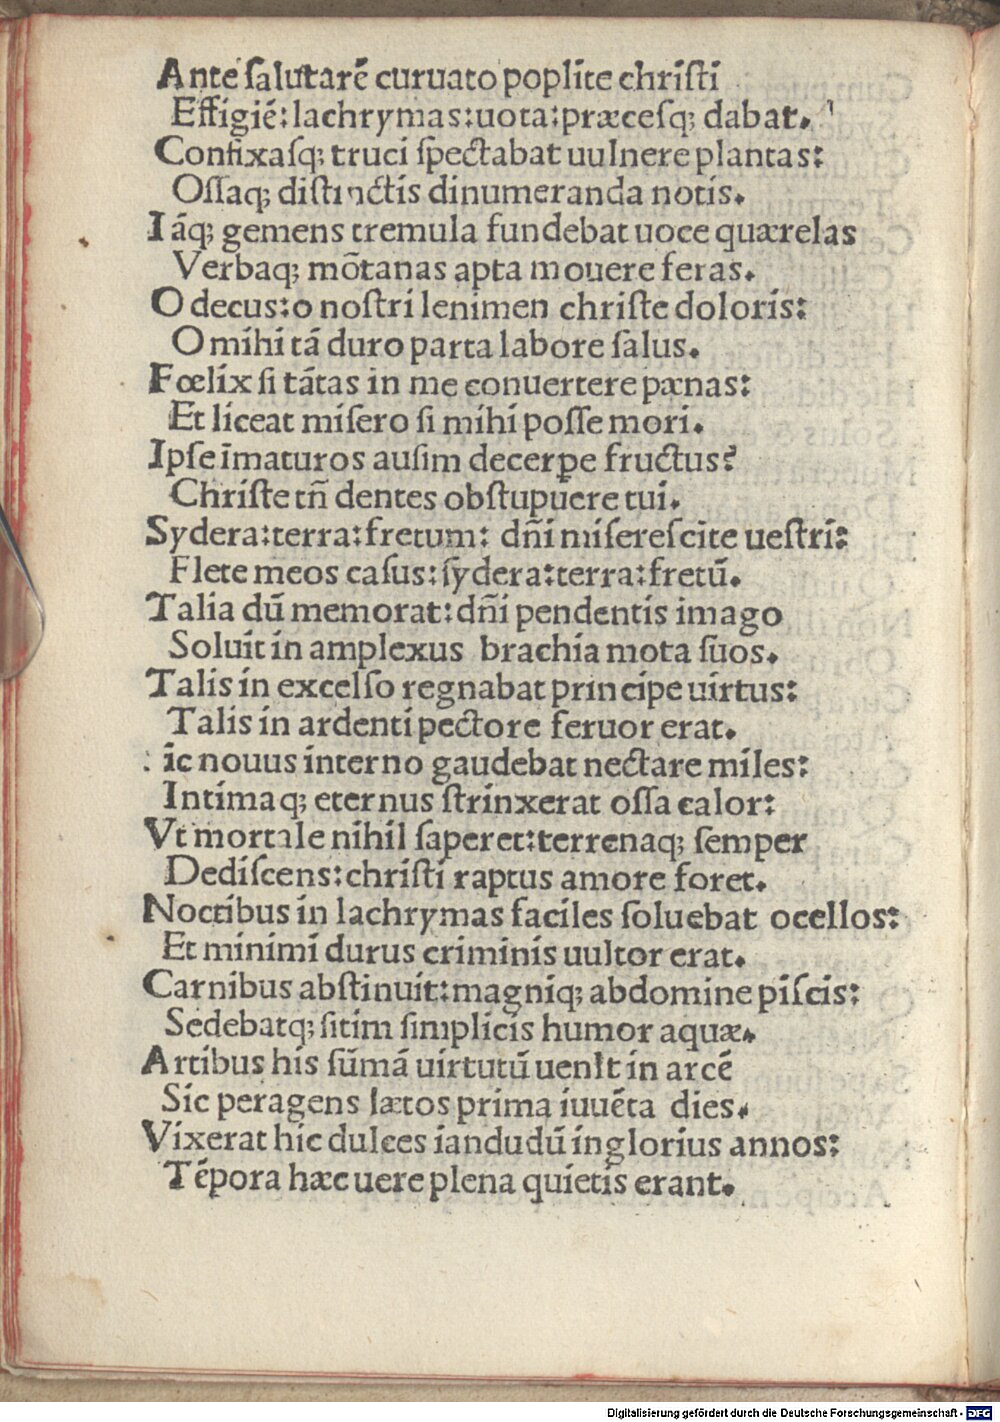 Ante ſalutarē curuato poplite chriſti
Effigiē: lachrymas: uota: præceſq; dabat.
Confixaſq; truci ſpectabat uulnere plantas:
Oſſaq; diſtinctis dinumeranda notis.
Iāq; gemens tremula fundebat uoce quærelas
Verbaq; mōtanas apta mouere feras.
O decus: o noſtri lenimen chriſte doloris:
O mihi tā duro parta labore ſalus.
Fœlix ſi tātas in me conuertere pænas:
Et liceat miſero ſi mihi poſſe mori.
Ipſe īmaturos auſim decerpe fructus?
Chriſte tñ dentes obſtupuere tui.
Sydera: terra: fretum: dñi miſereſcite ueſtri:
Flete meos caſus: ſydera: terra: fretū.
Talia dū memorat: dñi pendentis imago
Soluit in amplexus brachia mota ſuos.
Talis in excelſo regnabat principe uirtus:
Talis in ardenti pectore feruor erat.
īc nouus interno gaudebat nectare miles:
Intimaq; eternus ſtrinxerat oſſa calor:
Vt mortale nihil ſaperet: terrenaq; ſemper
Dediſcens: chriſti raptus amore foret.
Noctibus in lachrymas faciles ſoluebat ocellos:
Et minimi durus criminis uultor erat.
Carnibus abſtinuit: magniq; abdomine piſcis:
Sedebatq; ſitim ſimplicis humor aquæ.
Artibus his ſūmā uirtutū uenIt in arcē
Sic peragens lætos prima iuuēta dies.
Vixerat hic dulces iandudū inglorius annos:
Tēpora hæc uere plena quietis erant.
Digitalisierung gefördert durch die Deutsche Forschungsgemeinschaft - DFG